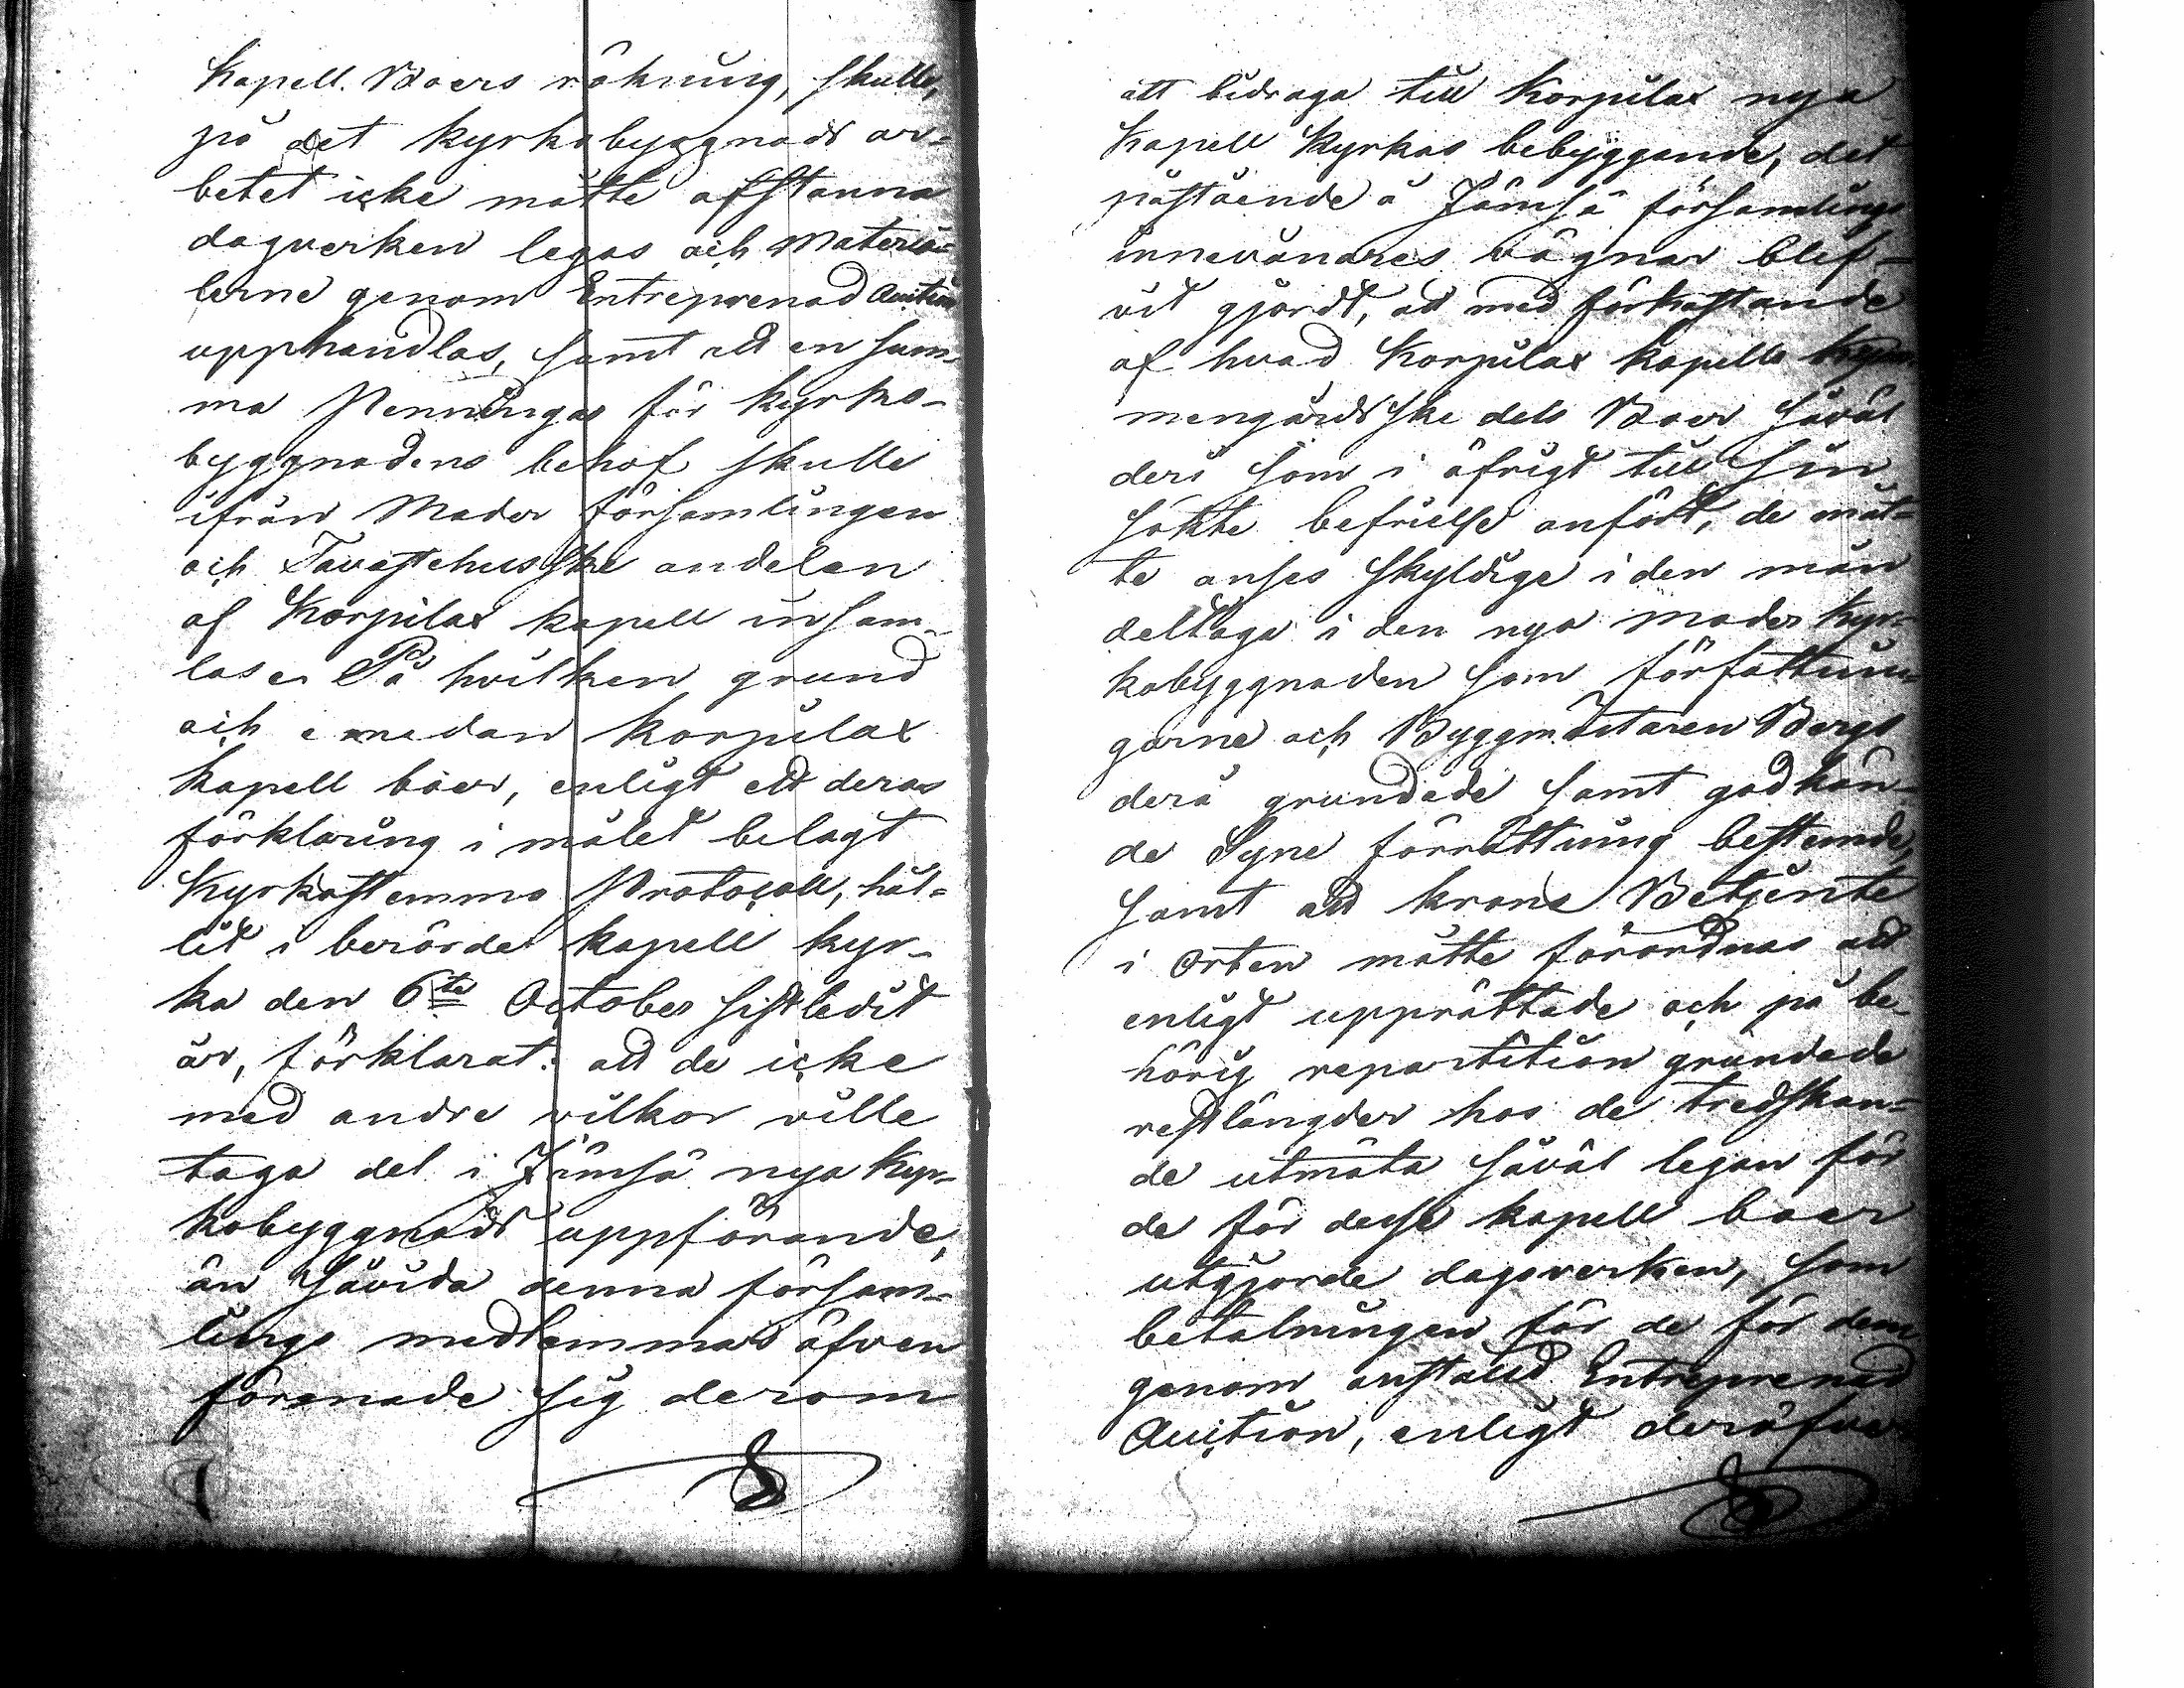 Kapell Boers räkning, skulle,
på det kyrkobyggnads ar-
betet icke måtte afstanna
dagverken legas och Materia-
lerne genom Entreprenad Auction
upphandlas, samt att en sum-
ma Penningar för kyrko-
byggnadens behof skulle
ifrån Moder församlingen
och Tavastehusske andelen
af Korpilax kapell insam-
las. På hvilken grund
och emedan Korpilax
Kapell boer, enligt ett deras
förklaring i målet belagt
Kyrkostemmo Protocoll, hål-
lit i berörde kapell kyr-
ka den 6te October sistledit
år, förklarat: att de icke
med andre vilkor ville
taga del i Jämsä nya kyr-
kobyggnads uppförande,
än såvida denna försam-
lings medlemmar äfven
förenade sig derom
att bidraga till Korpilax nya
Kapell Kyrkas bebyggande, det
påstående å Jämsä församlings
innevånares vägnar blif-
vit gjordt, att med förkastande
af hvad Korpilax kapells
mengårdsske dels Boer såväl
deri som i öfrigt till sin
sökte befrielse anfört, de måt-
te anses skyldige i den mån
deltaga i den nya moder kyr-
kobyggnaden som författnin-
garne och Byggmästaren Bergs
derå grundade samt godkän-
de Syne förrättning bestemde,
samt att krono Betjente
i Orten måtte förordnas att
enligt upprättade och på be-
hörig repartition grundade
restlängder hos de tredskan-
de utmäta såväl legan för
de för desse kapell boer
utgjorde dagsverken, som
betalningen för de för dem
genom anställd Entreprenad
Auction, enligt deröfver